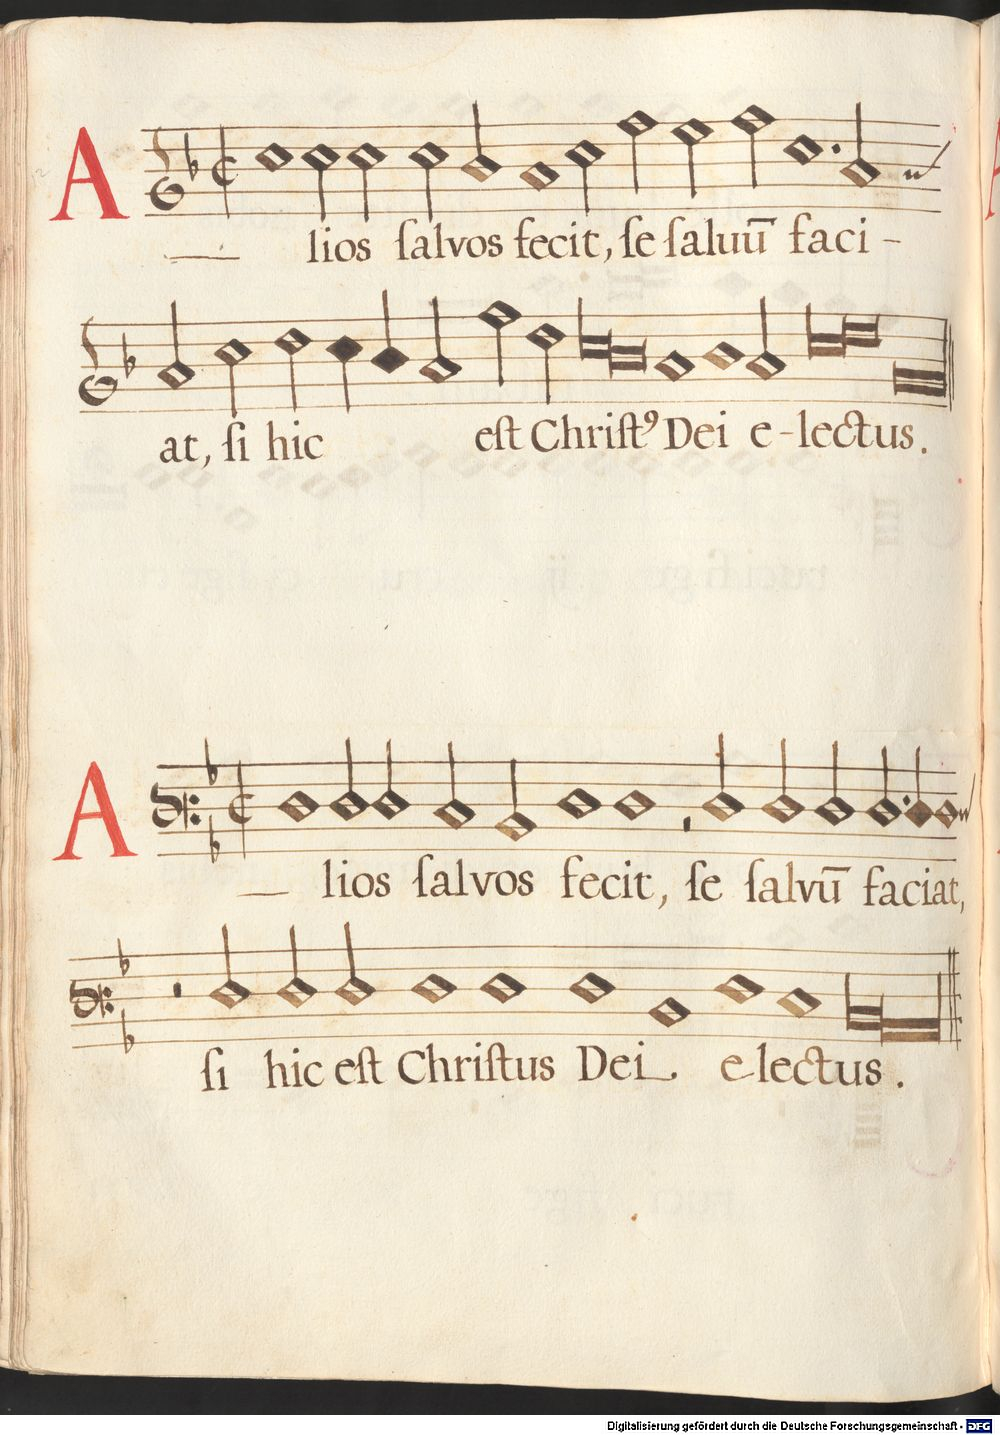 A lios ſalvos fecit, ſe ſaluū faci -
at, ſi hic eſt Chriſtꝰ Dei e - lectus .
A lios ſalvos fecit, ſe ſalvū faciat,
ſi hic eſt Chriſtus Dei e - lectus .
Digitalisierung gefördert durch die Deutsche Forschungsgemeinschaft - DFG